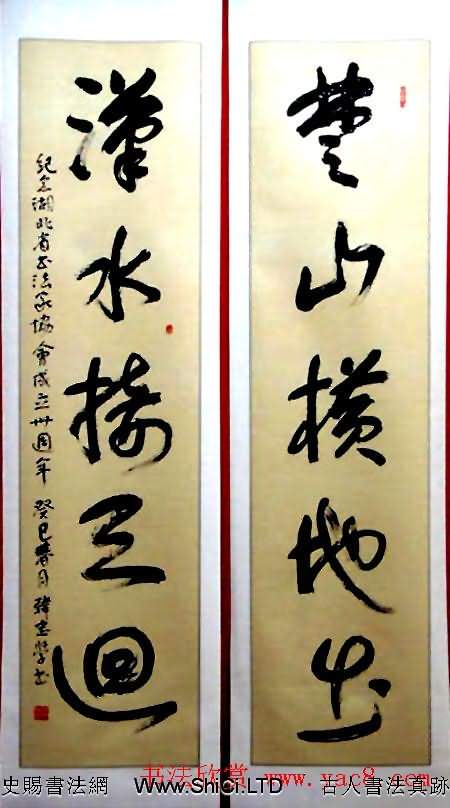 楚山横地出
漢水接天迴
紀念湖北省书法家協會成立卅周年 癸巳春月 韓忠學书
书法欣赏 www.yac8.com
史賜書法網 www.ShiCi.LTD 古人書法真跡